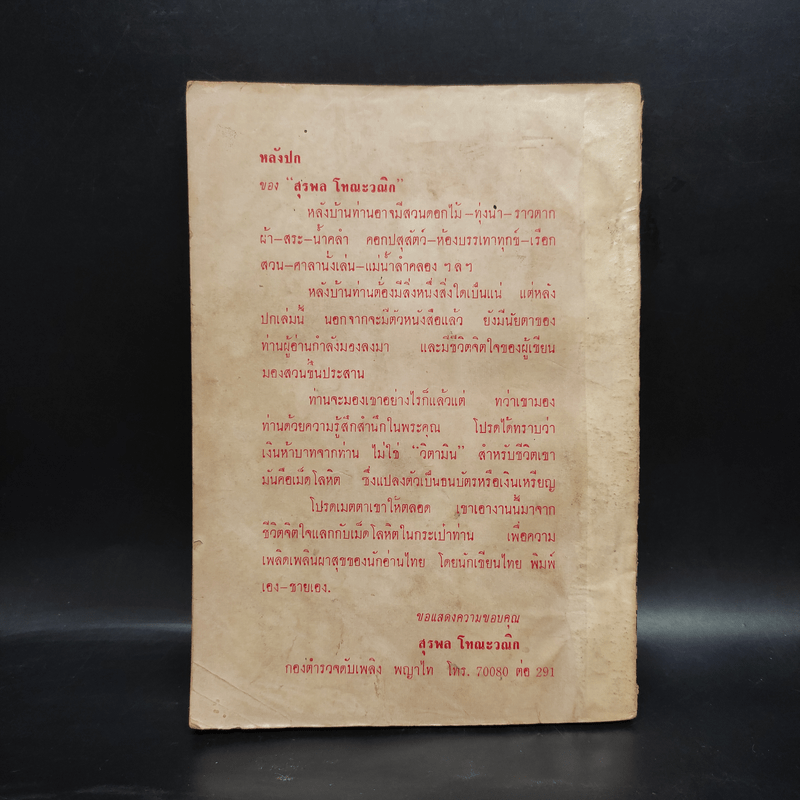 หลังปก
ของ "สุรพล โทณะวณิก"
หลังบ้านท่านอาจมีสวนดอกไม้–ทุ่งนา–ราวตาก
ผ้า–สระ–น้ำคลำ คอกปสุสัตว์–ห้องบรรเทาทุกข์–เรือก
สวน–ศาลานั่งเล่น–แม่น้ำลำคลอง ฯลฯ
หลังบ้านท่านต้องมีสิ่งหนึ่งสิ่งใดเป็นแน่ แต่หลัง
ปกเล่มนี้ นอกจากจะมีตัวหนังสือแล้ว ยังมีนัยตาของ
ท่านผู้อ่านกำลังมองลงมา และมีชีวิตจิตใจของผู้เขียน
มองสวนขึ้นประสาน
ท่านจะมองเขาอย่างไรก็แล้วแต่ ทว่าเขามอง
ท่านด้วยความรู้สึกสำนึกในพระคุณ โปรดได้ทราบว่า
เงินห้าบาทจากท่าน ไม่ใช่ "วิตามิน" สำหรับชีวิตเขา
มันคือเม็ดโลหิต ซึ่งแปลงตัวเป็นธนบัตรหรือเงินเหรียญ
โปรดเมตตาเขาให้ตลอด เขาเอางานนี้มาจาก
ชีวิตจิตใจแลกกับเม็ดโลหิตในกระเป๋าท่าน เพื่อความ
เพลิดเพลินผาสุขของนักอ่านไทย โดยนักเขียนไทย พิมพ์
เอง–ขายเอง.
ขอแสดงความขอบคุณ
สุรพล โทณะวณิก
กองตำรวจดับเพลิง พญาไท โทร. 70080 ต่อ 291